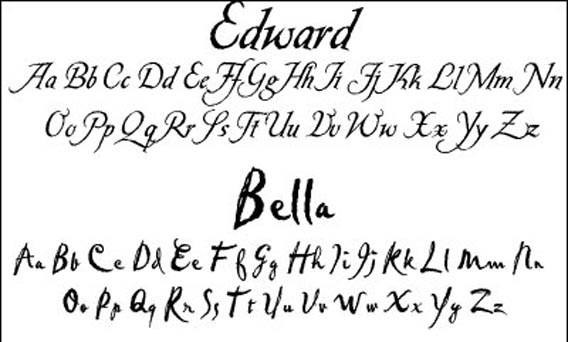 Edward
Aa Bb Cc Dd Ee Ff Gg Hh Ii Jj Kk Ll Mm Nn
Oo Pp Qq Rr Ss Tt Uu Vv Ww Xx Yy Zz
Bella
Aa Bb Cc Dd Ee Ff Gg Hh Ii Jj Kk Ll Mm Nn
Oo Pp Qq Rr Ss Tt Uu Vv Ww Xx Yy Zz